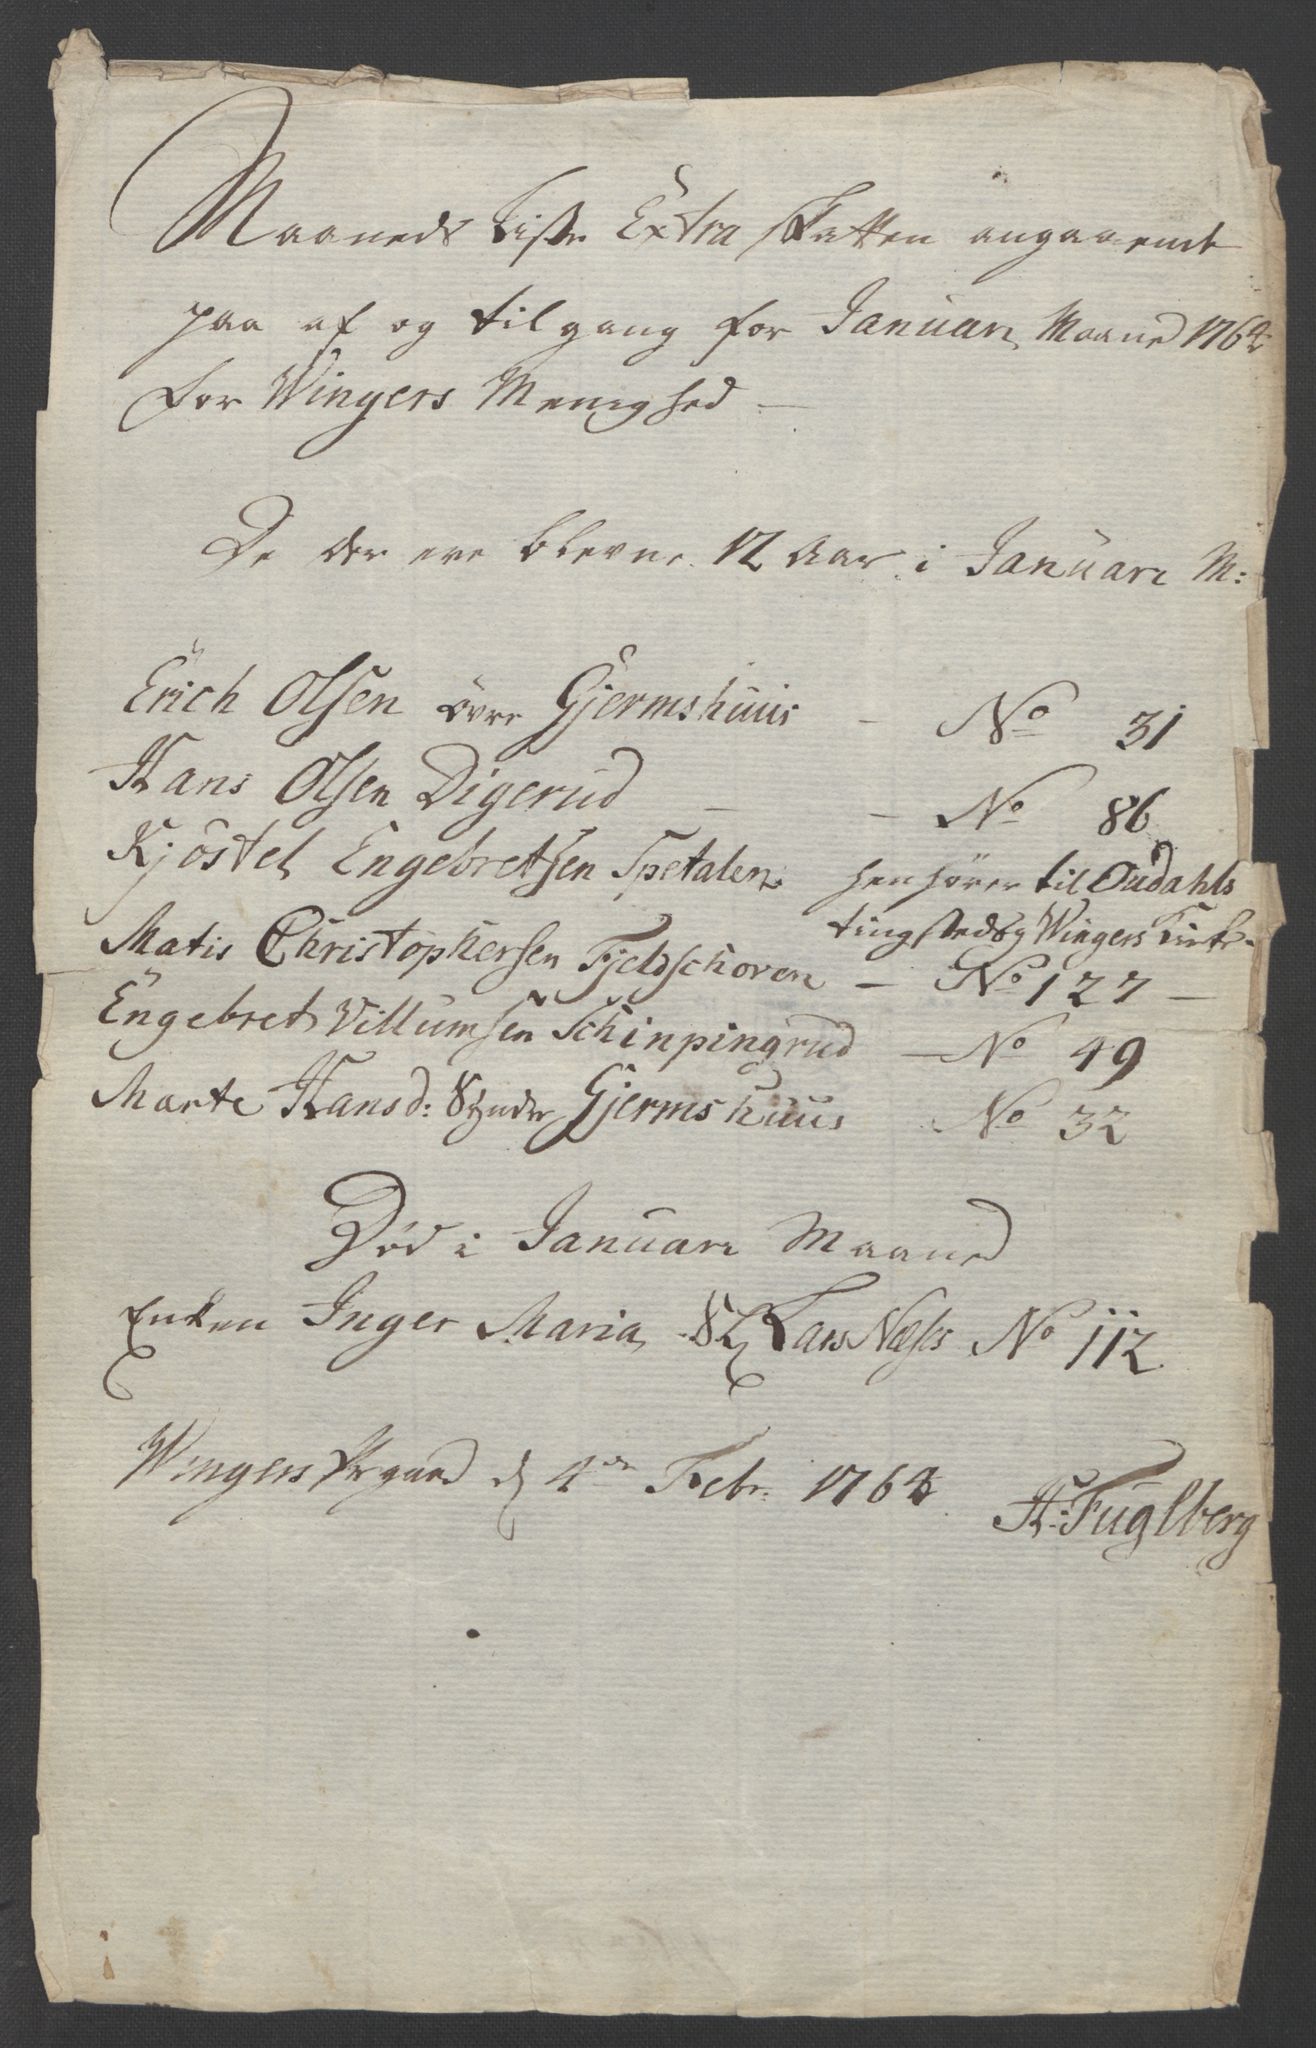 Maaneds Liste Extra Skatten angaaende
paa af og tilgang for Januari Maaned 1764
for Wingers Menighed —
De der ere blevne 12 Aar i Januari M:
Erich Olsen övre Gjermshuus - No 31
Hans Olsen Digerud - - No 86
Kjöstel Engebretsen Spetalen henhörer til Oudahls
tingsted og Wingers Kirke -
Matis Christophersen Fjeldschoven - No 127 -
Engebret Villumsen Schinpingrud - No 49
Marte Hansd: Gjermshuus No 32
Död i Januari Maaned
Enken Inger Maria Sl Lars Næss No 112
Wingers Prgaard d 4de Febr: 1764
H: Fuglberg